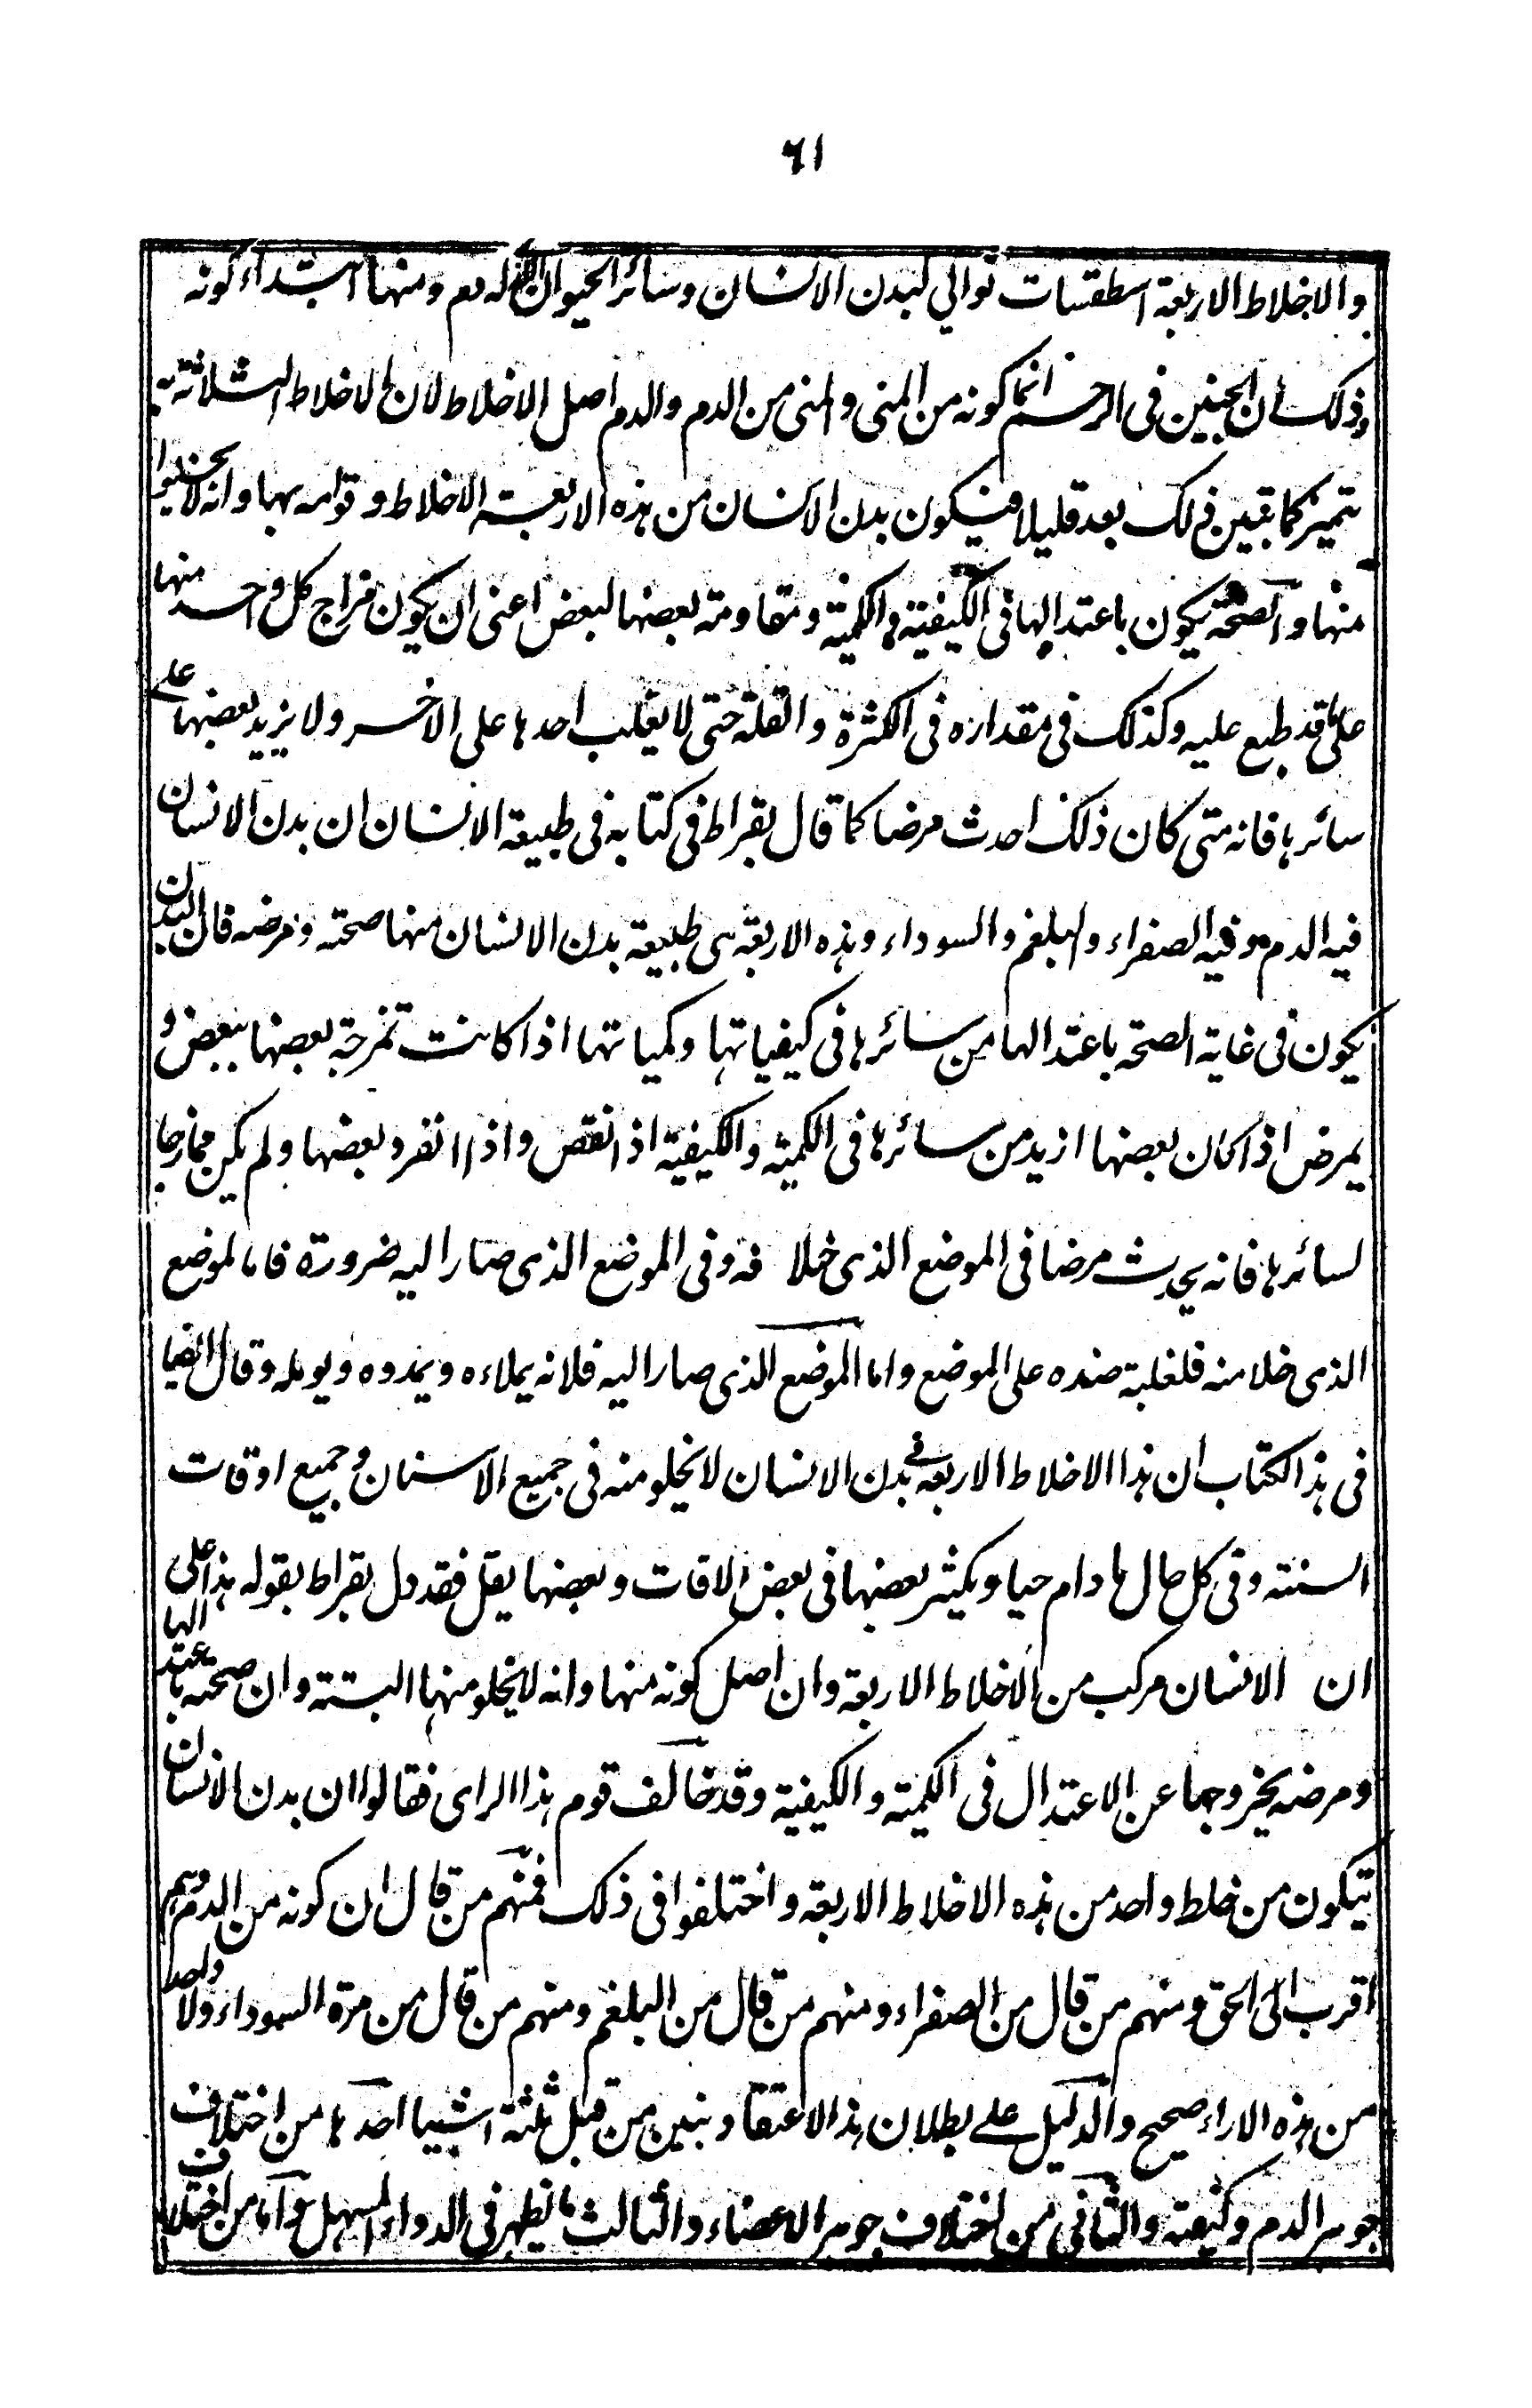 ٦١
والاخلاط الاربعة اسطقسات ثوالي لبدن الانسان وسائر الحيوان الذي له دم ومنها ابتداء كونه
وذلك ان الجنين في الرحم انما كونه من المني والمني من الدم والدم اصل الاخلاط لان الاخلاط الثلاثة به
تتميز كما تبين ذلك بعد قليلا فيكون بدن الانسان من هذه الاربعة الاخلاط وقوامه بها وانه لا يخلوا
منها والصحة يكون باعتدالها في الكيفية والكمية ومقاومة بعضها لبعض اعني ان يكون مزاج كل واحد منها
على ما قد طبع عليه وكذلك في مقداره في الكثرة والقلة حتى لا يغلب احدها على الاخر ولا يزيد بعضها على
سائرها فانه متى كان ذلك احدث مرضا كما قال بقراط في كتابه في طبيعة الانسان ان بدن الانسان
فيه الدم وفيه الصفراء والبلغم والسوداء وهذه الاربعة هي طبيعة بدن الانسان منها صحته ومرضه فان البدن
يكون في غاية الصحة باعتدالها من سائرها في كيفياتها وكمياتها اذا كانت تمزجة بعضها ببعض و
يمرض اذا كان بعضها ازيد من سائرها في الكمية والكيفية اذا نقص واذا انفرد بعضها ولم يكن ممازجا
لسائرها فانه يحدث مرضا في الموضع الذي خلا فه وفي الموضع الذي صار اليه ضرورة فاما الموضع
الذي خلا منه فلغلبة ضده على الموضع واما الموضع الذي صار اليه فلانه يملاءه ويمدده ويولمه وقال ايضا
في هذا الكتاب ان هذا الاخلاط الاربعة في بدن الانسان لا يخلو منه في جميع الاسنان وجميع اوقات
السنته وفي كل حال ما دام حيا ويكثر بعضها في بعض الاقات وبعضها يقل فقد دل بقراط بقوله هذا على
ان الانسان مركب من الاخلاط الاربعة وان اصل كونه منها وانه لا يخلو منها البتة وان صحته باعتدالها
ومرضه بخروجها عن الاعتدال في الكمية والكيفية وقد خالف قوم هذا الراى فقالوا ان بدن الانسان
يتكون من خلط واحد من هذه الاخلاط الاربعة واختلفوا في ذلك فمنهم من قال ان كونه من الدم وهم
اقرب الى الحق ومنهم من قال من الصفراء ومنهم من قال من البلغم ومنهم من قال من مرة السوداء ولا واحد
من هذه الاراء صحيح والدليل على بطلان هذا الاعتقاد نبين من قبل ثلثة اشيا احدها من اختلاف
جوهر الدم وكيفيته والثاني من اختلاف جوهر الاعضاء والثالث ما يظهر في الدواء المسهل واما من اختلاف